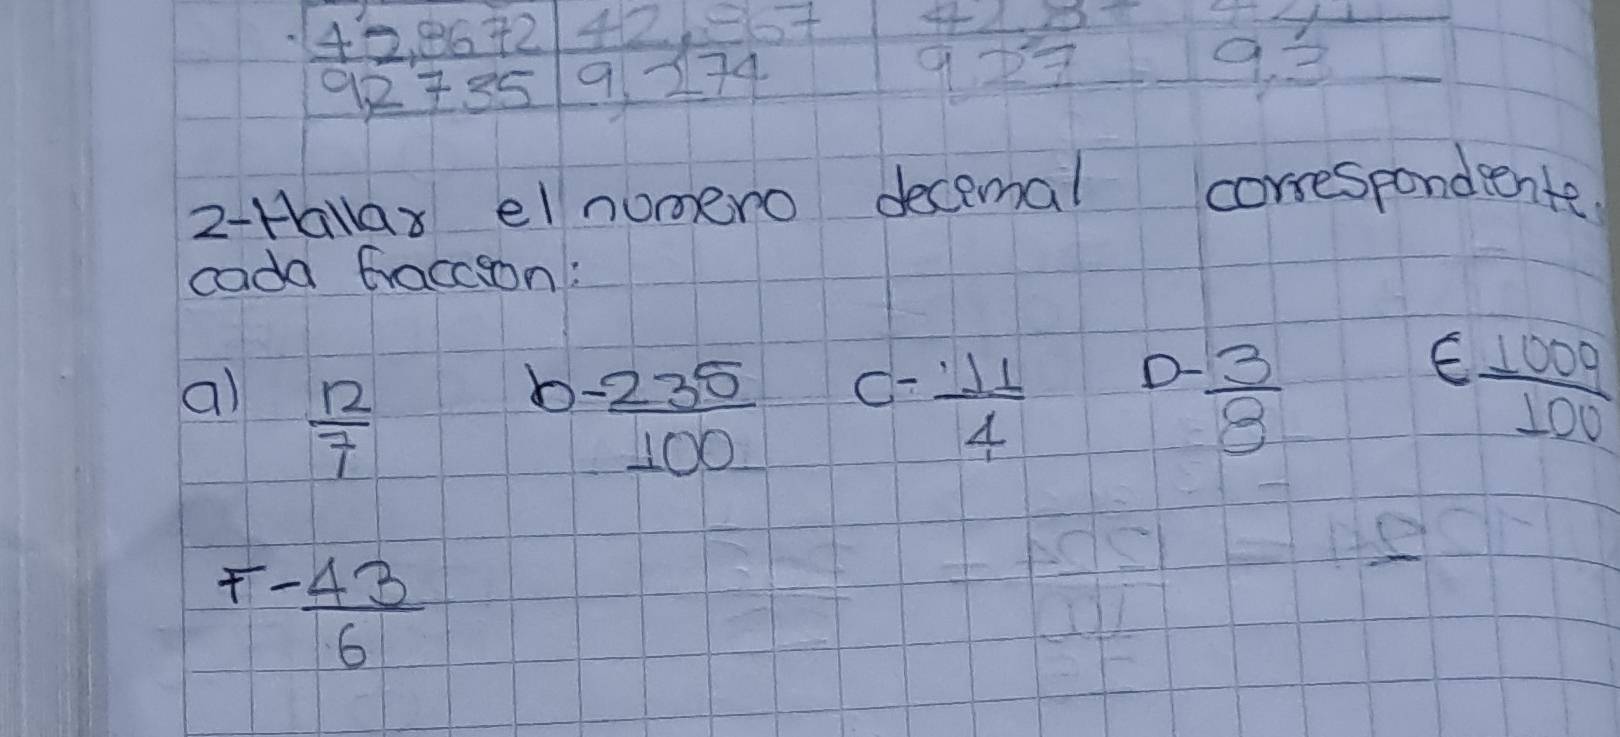 42,8672 42,867
92735 9,274 9,27 9,3
2-Hallar el numero decimal correspondiente
cada fraccion:
a) 12/7 b- 235/100 C- 11/4 D- 3/8 E 1009/100
F- 43/6